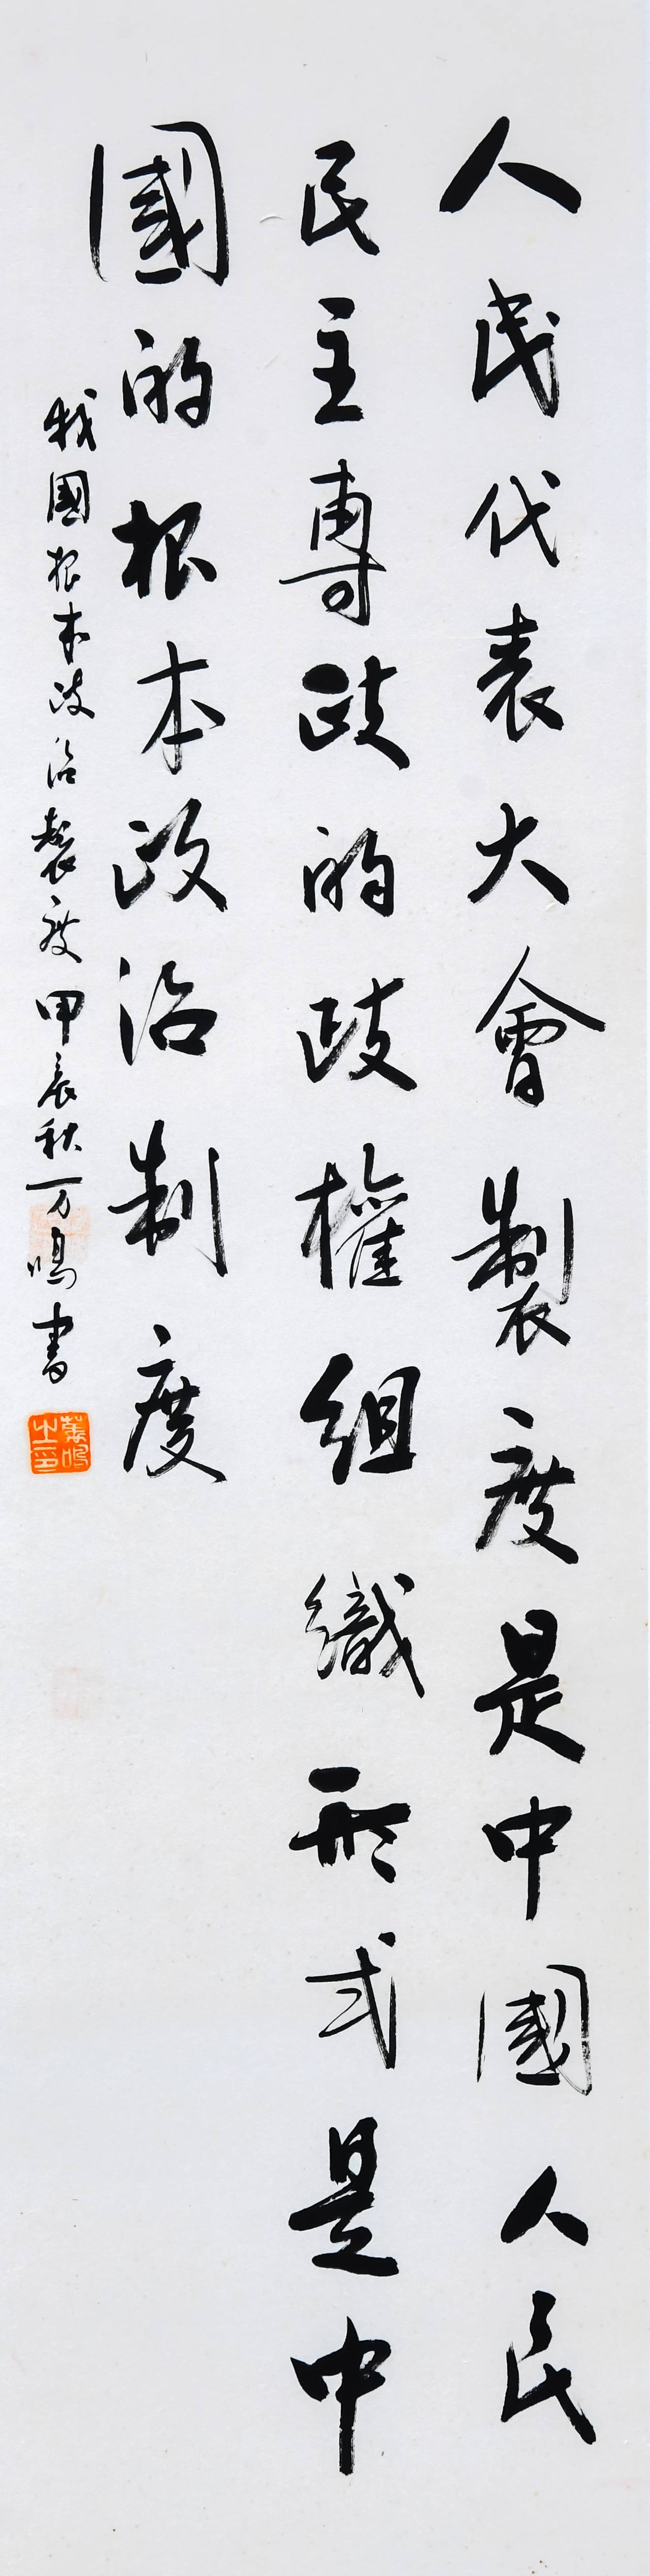 人民代表大會製度是中國人民
民主專政的政權組織形式是中
國的根本政治制度
我國根本政治製度甲辰秋万鳴書